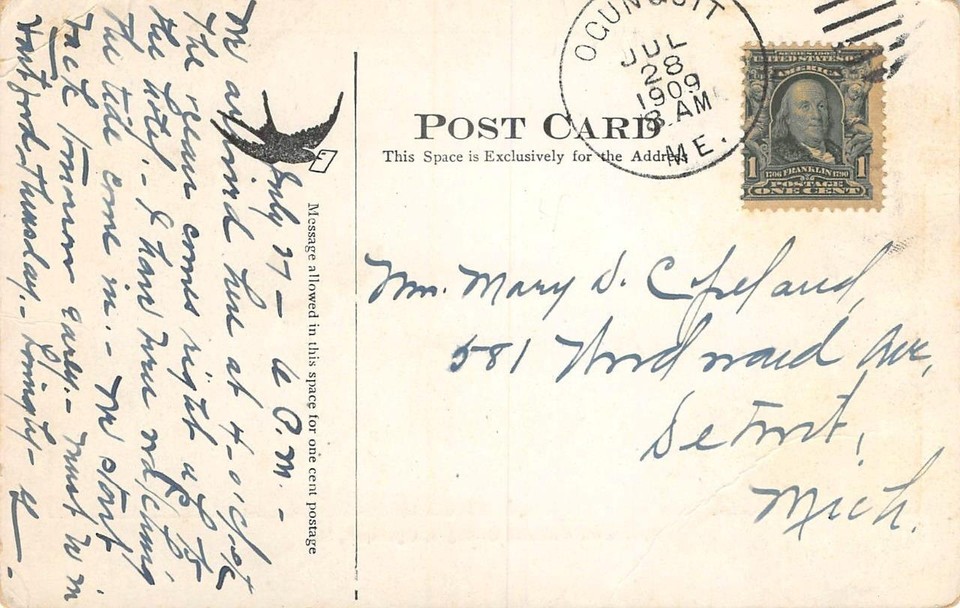 OGUNQUIT
JUL
28
1909
8 AM
ME.
SERIES 1902
UNITED STATES OF
AMERICA
1 1706 FRANKLIN 1790 1
POSTAGE
ONE CENT
POST CARD
This Space is Exclusively for the Address
Message allowed in this space for one cent postage
July 27 – 6 P.M. –
We arrived here at 4-o'clock
The ocean comes right up to
the hotel – & have been watching
the tide come in. – We start
back tomorrow early. – must be in
Hartford, Thursday. – Lovingly –
Mrs. Mary D. Copeland,
581 Woodward Ave,
Detroit,
Mich.